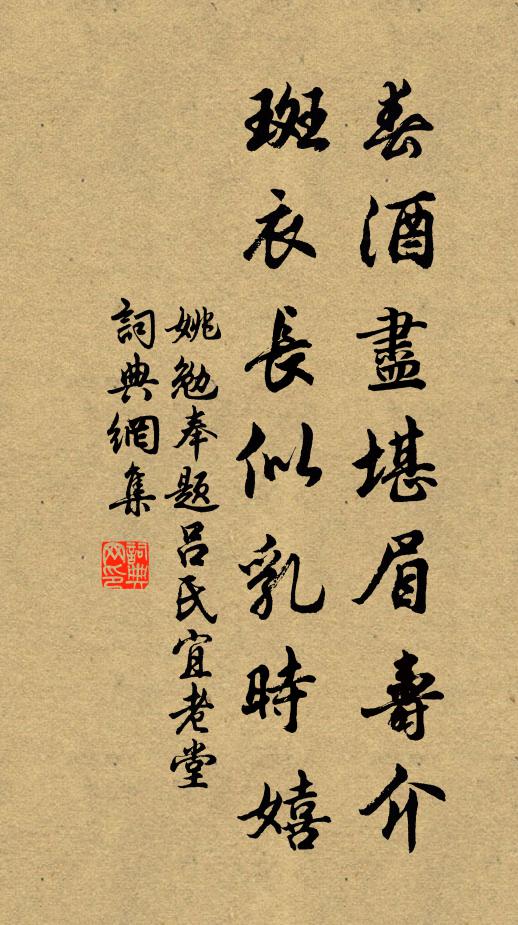 春酒盡堪眉壽介
斑衣長似乳時嬉
姚勉奉題呂氏宜老堂
詞典網集
詞典網印